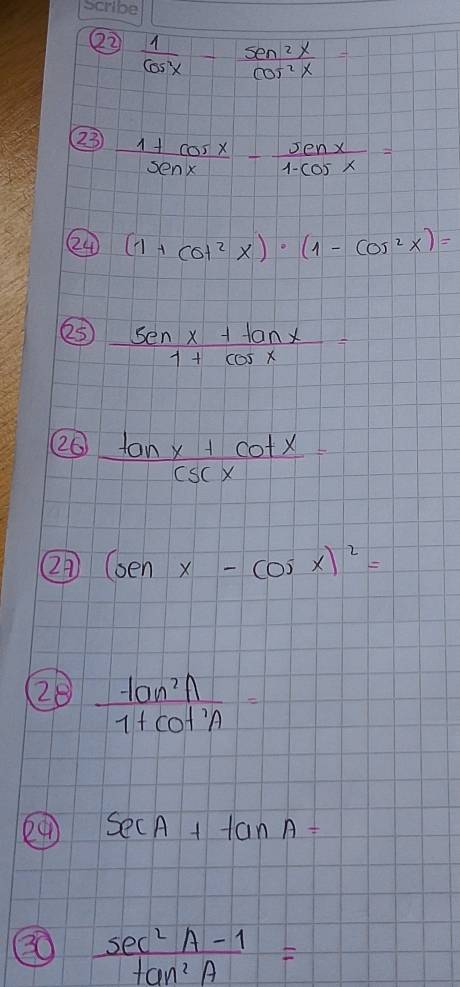 Scribe
22 1/cos²x - sen²x/cos²x =
23 1 + cos x/sen x - sen x/1 - cos x =
24 (1 + cot² x) · (1 - cos² x) =
25 sen x + tan x/1 + cos x =
26 tan x + cot x/csc x =
27 (sen x - cos x)² =
28 tan²A/1 + cot²A =
29 sec A + tan A =
30 sec² A - 1/tan² A =